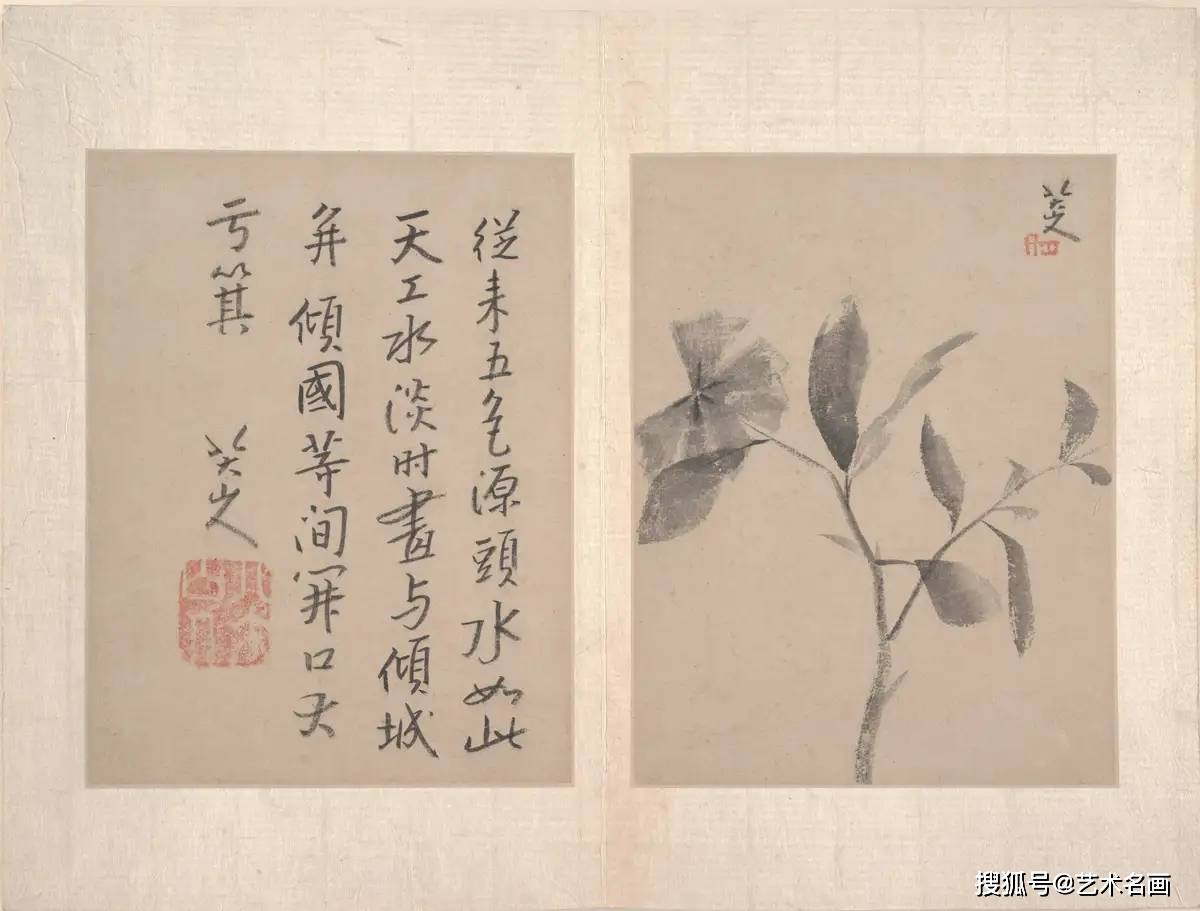 從来五色源頭水如此
天工水淡时畫与傾城
并傾國等间開口
亏箕
八大山人
八大山人
搜狐号@艺术名画